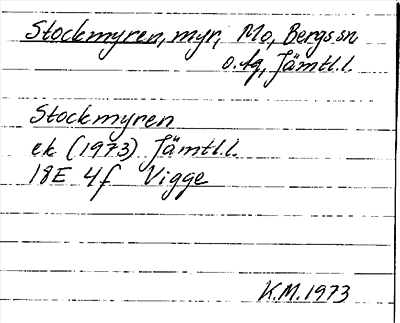 Stockmyren, myr, Mo, Bergs sn
o. tg, Jämtl. l.
Stockmyren
ek (1973) Jämtl. l.
18E 4f Vigge
K.M. 1973